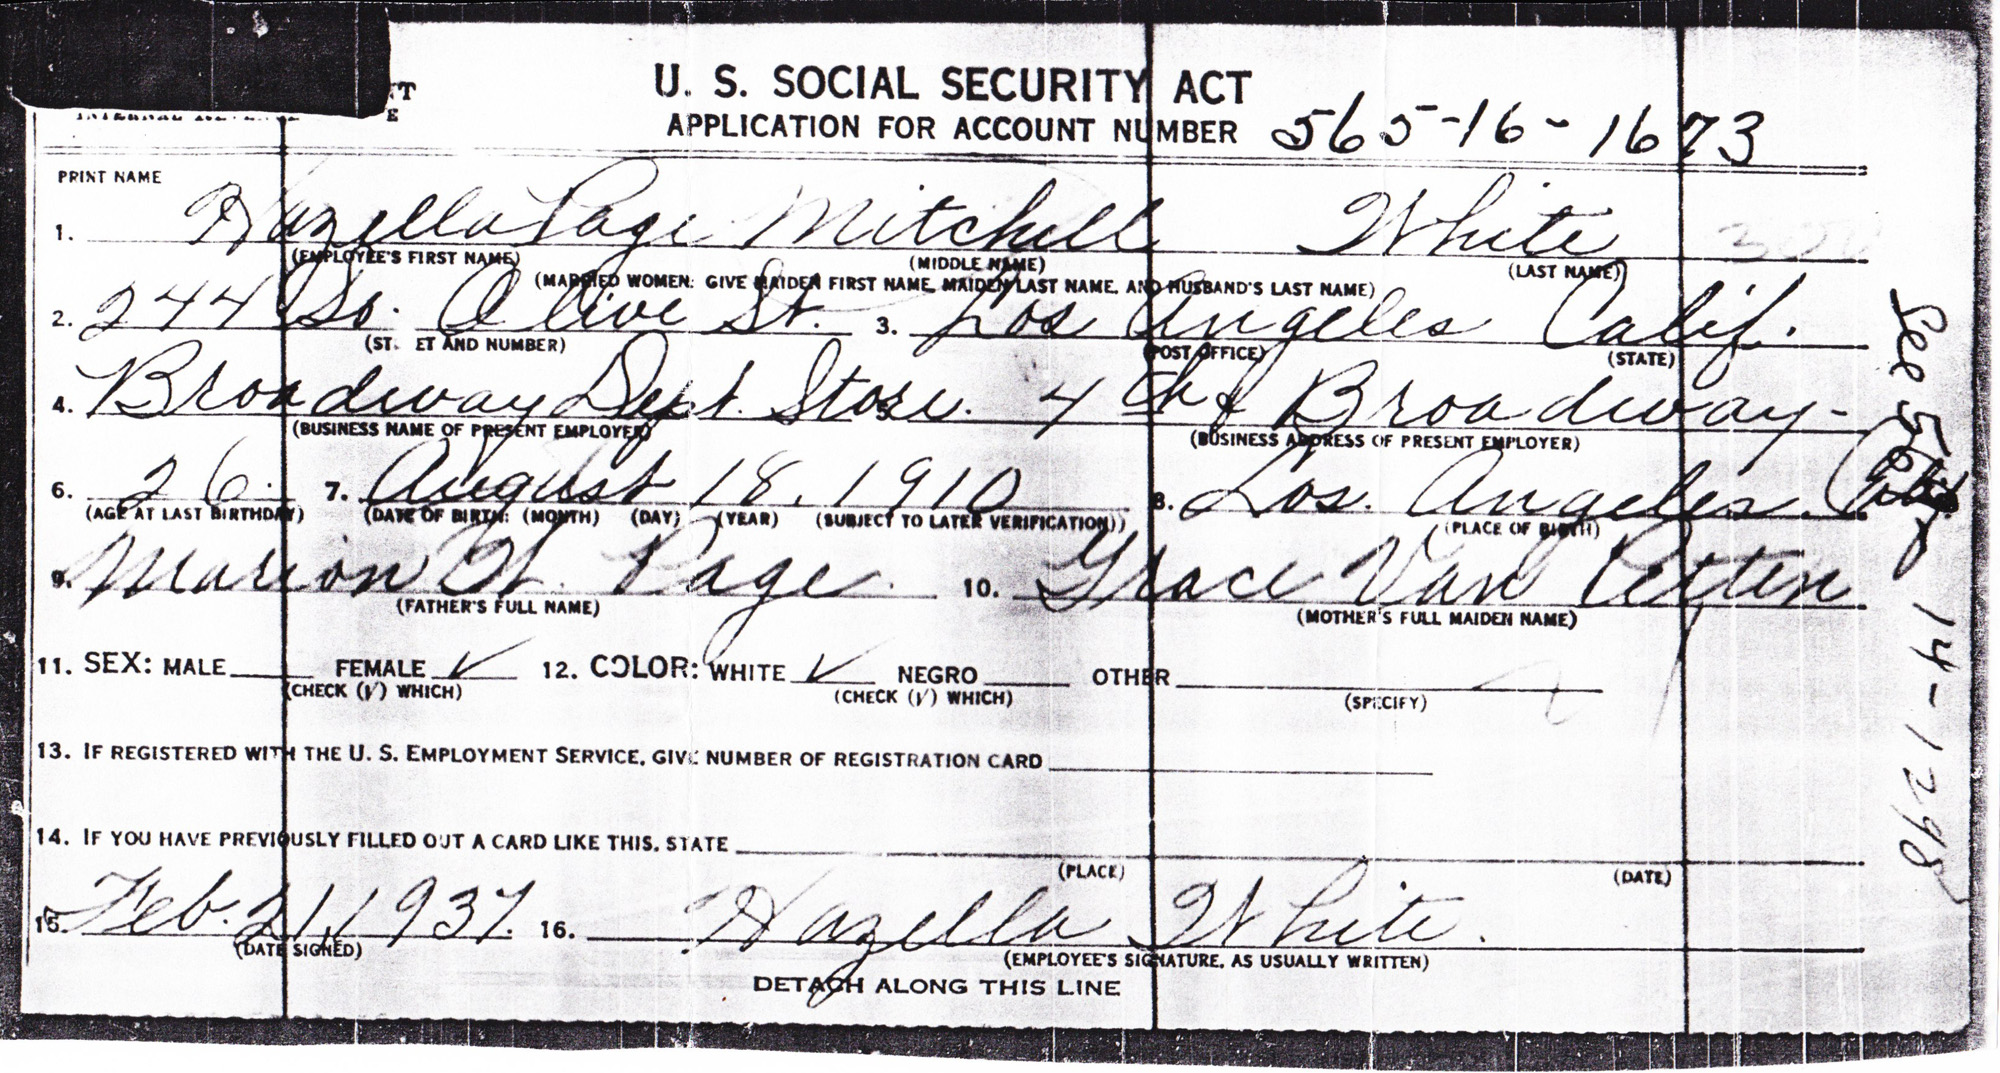 U. S. SOCIAL SECURITY ACT
APPLICATION FOR ACCOUNT NUMBER 565-16-1673
PRINT NAME
1. Hazella Page Mitchell White
(EMPLOYEE'S FIRST NAME) (MIDDLE NAME) (LAST NAME)
(MARRIED WOMEN: GIVE MAIDEN FIRST NAME, MAIDEN LAST NAME, AND HUSBAND'S LAST NAME)
2. 244 So. Olive St. 3. Los Angeles Calif.
(STREET AND NUMBER) (POST OFFICE) (STATE)
4. Broadway Dept. Store. 5. 4th & Broadway-
(BUSINESS NAME OF PRESENT EMPLOYER) (BUSINESS ADDRESS OF PRESENT EMPLOYER)
6. 26. 7. August 18, 1910 8. Los. Angeles.
(AGE AT LAST BIRTHDAY) (DATE OF BIRTH: (MONTH) (DAY) (YEAR) (SUBJECT TO LATER VERIFICATION)) (PLACE OF BIRTH)
9. Marion W. Page. 10. Grace Van Petten
(FATHER'S FULL NAME) (MOTHER'S FULL MAIDEN NAME)
11. SEX: MALE FEMALE ✓ 12. COLOR: WHITE ✓ NEGRO OTHER
(CHECK (√) WHICH) (CHECK (√) WHICH) (SPECIFY)
13. IF REGISTERED WITH THE U. S. EMPLOYMENT SERVICE, GIVE NUMBER OF REGISTRATION CARD
14. IF YOU HAVE PREVIOUSLY FILLED OUT A CARD LIKE THIS, STATE
(PLACE) (DATE)
15. Feb. 21, 1937. 16. Hazella White.
(DATE SIGNED) (EMPLOYEE'S SIGNATURE, AS USUALLY WRITTEN)
DETACH ALONG THIS LINE
See 14-1298